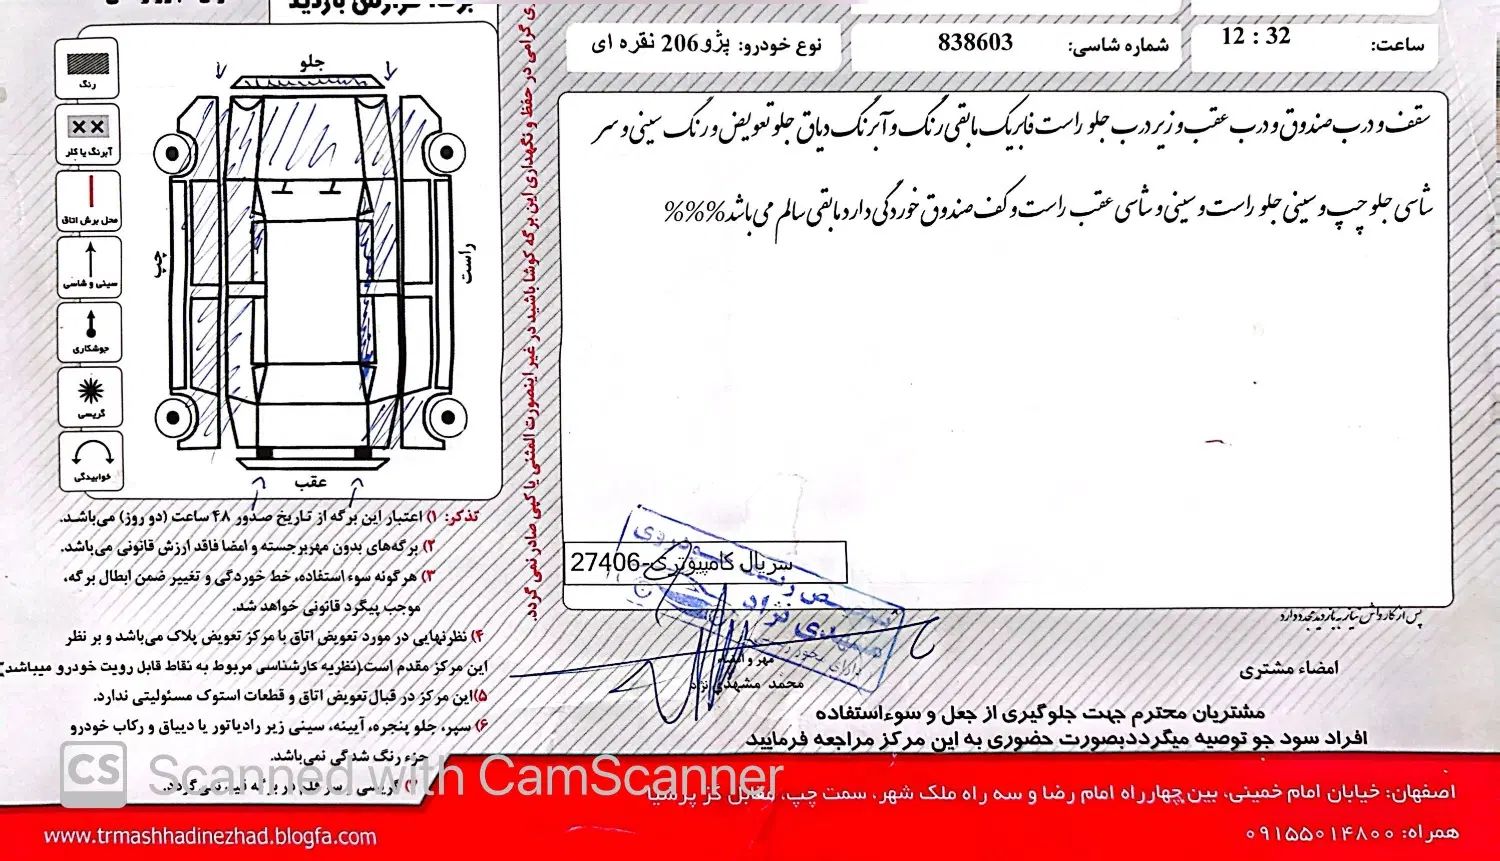 برگه گزارش بازدید
ساعت: 32 : 12
شماره شاسی: 838603
نوع خودرو: پژو206 نقره ای
سقف و درب صندوق و درب عقب و زیر درب جلو راست فابریک مابقی رنگ و آبرنگ دیاق جلو تعویض و رنگ سینی و سر
شاسی جلو چپ و سینی جلو راست و سینی و شاسی عقب راست و کف صندوق خوردگی دارد مابقی سالم می باشد%%%
سریال کامپیوتری-27406
مهر و امضاء
محمد مشهدی نژاد
پس از کارواش نیاز به بازدید مجدد دارد
امضاء مشتری
مشتریان محترم جهت جلوگیری از جعل و سوءاستفاده
افراد سود جو توصیه میگرددبصورت حضوری به این مرکز مراجعه فرمایید
ی گرامی در حفظ و نگهداری این برگه کوشا باشید در غیر اینصورت المثنی یا کپی صادر نمی گردد.
رنگ
آبرنگ یا کلر
محل برش اتاق
سینی و شاسی
جوشکاری
گریسی
خوابیدگی
جلو
چپ
راست
عقب
تذکر: ۱) اعتبار این برگه از تاریخ صدور ۴۸ ساعت (دو روز) می‌باشد.
۲) برگه‌های بدون مهربرجسته و امضا فاقد ارزش قانونی می‌باشد.
۳) هرگونه سوء استفاده، خط خوردگی و تغییر ضمن ابطال برگه،
موجب پیگرد قانونی خواهد شد.
۴) نظرنهایی در مورد تعویض اتاق با مرکز تعویض پلاک می‌باشد و بر نظر
این مرکز مقدم است.(نظریه کارشناسی مربوط به نقاط قابل رویت خودرو میباشد)
۵)این مرکز در قبال تعویض اتاق و قطعات استوک مسئولیتی ندارد.
۶) سپر، جلو پنجره، آیینه، سینی زیر رادیاتور یا دیباق و رکاب خودرو
جزء رنگ شدگی نمی‌باشد.
CS Scanned with CamScanner
اصفهان: خیابان امام خمینی، بین چهارراه امام رضا و سه راه ملک شهر، سمت چپ، مقابل گز پرشیا
همراه: ۰۹۱۵۵۰۱۴۸۰۰
www.trmashhadinezhad.blogfa.com